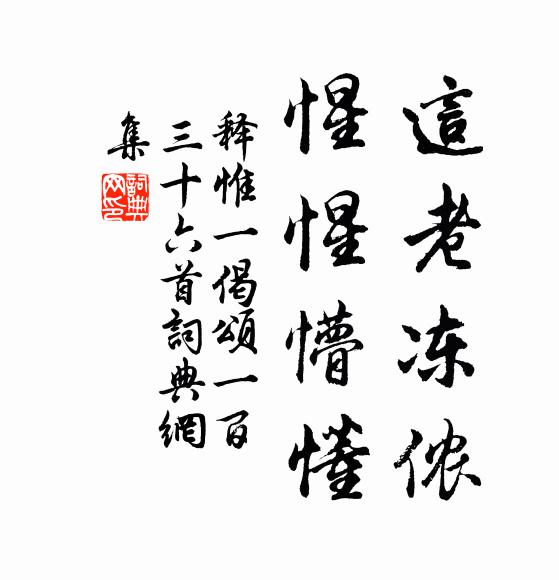 這老冻侬
惺惺懵懂
释惟一偈頌一百
三十六首詞典網
集
詞典网印